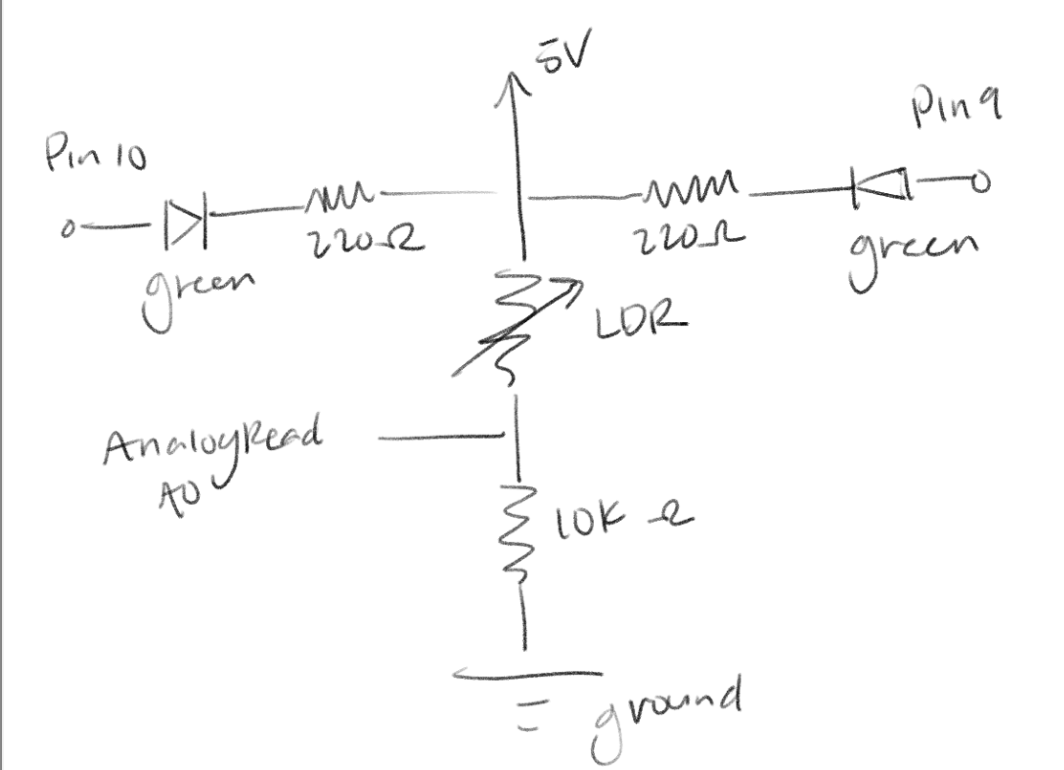 5V
Pin 10
Pin 9
220Ω
220Ω
green
green
LDR
AnalogRead
A0
10K Ω
ground